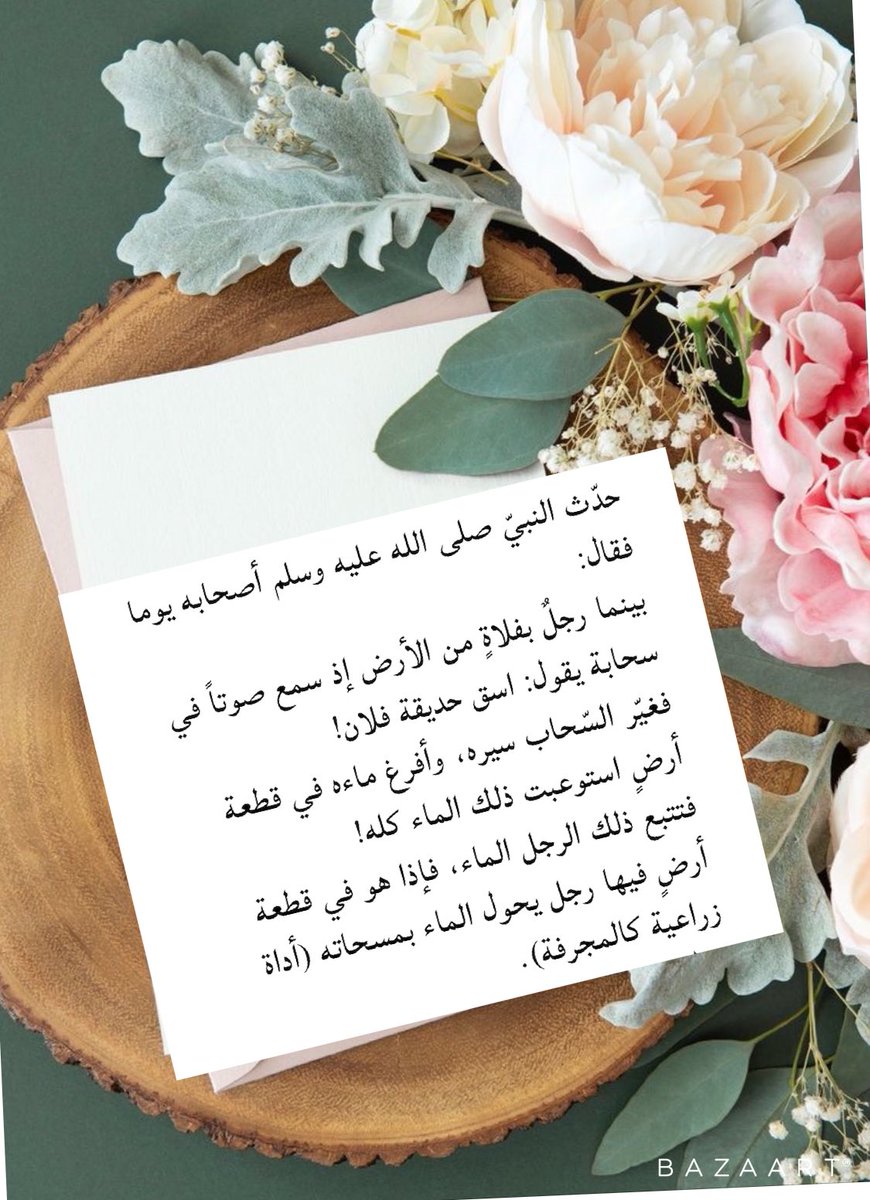 حدّث النبيّ صلى الله عليه وسلم أصحابه يوما
فقال:
بينما رجلٌ بفلاةٍ من الأرض إذ سمع صوتاً في
سحابة يقول: اسق حديقة فلان!
فغيّر السّحاب سيره، وأفرغ ماءه في قطعة
أرضٍ استوعبت ذلك الماء كله!
فتتبع ذلك الرجل الماء، فإذا هو في قطعة
أرضٍ فيها رجل يحول الماء بمسحاته (أداة
زراعية كالمجرفة).
BAZAART